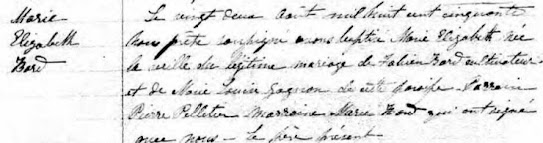 Marie
Elizabeth
Bard
Le vingt deux Août mil huit cent cinquante
nous prêtre soussigné avons baptisé Marie Elizabeth née
la veille du légitime mariage de Fabien Bard cultivateur
et de Marie Louise Gagnon de cette paroisse Parrain
Pierre Pelletier Marraine Marie Bard qui ont signé
avec nous - Le père présent